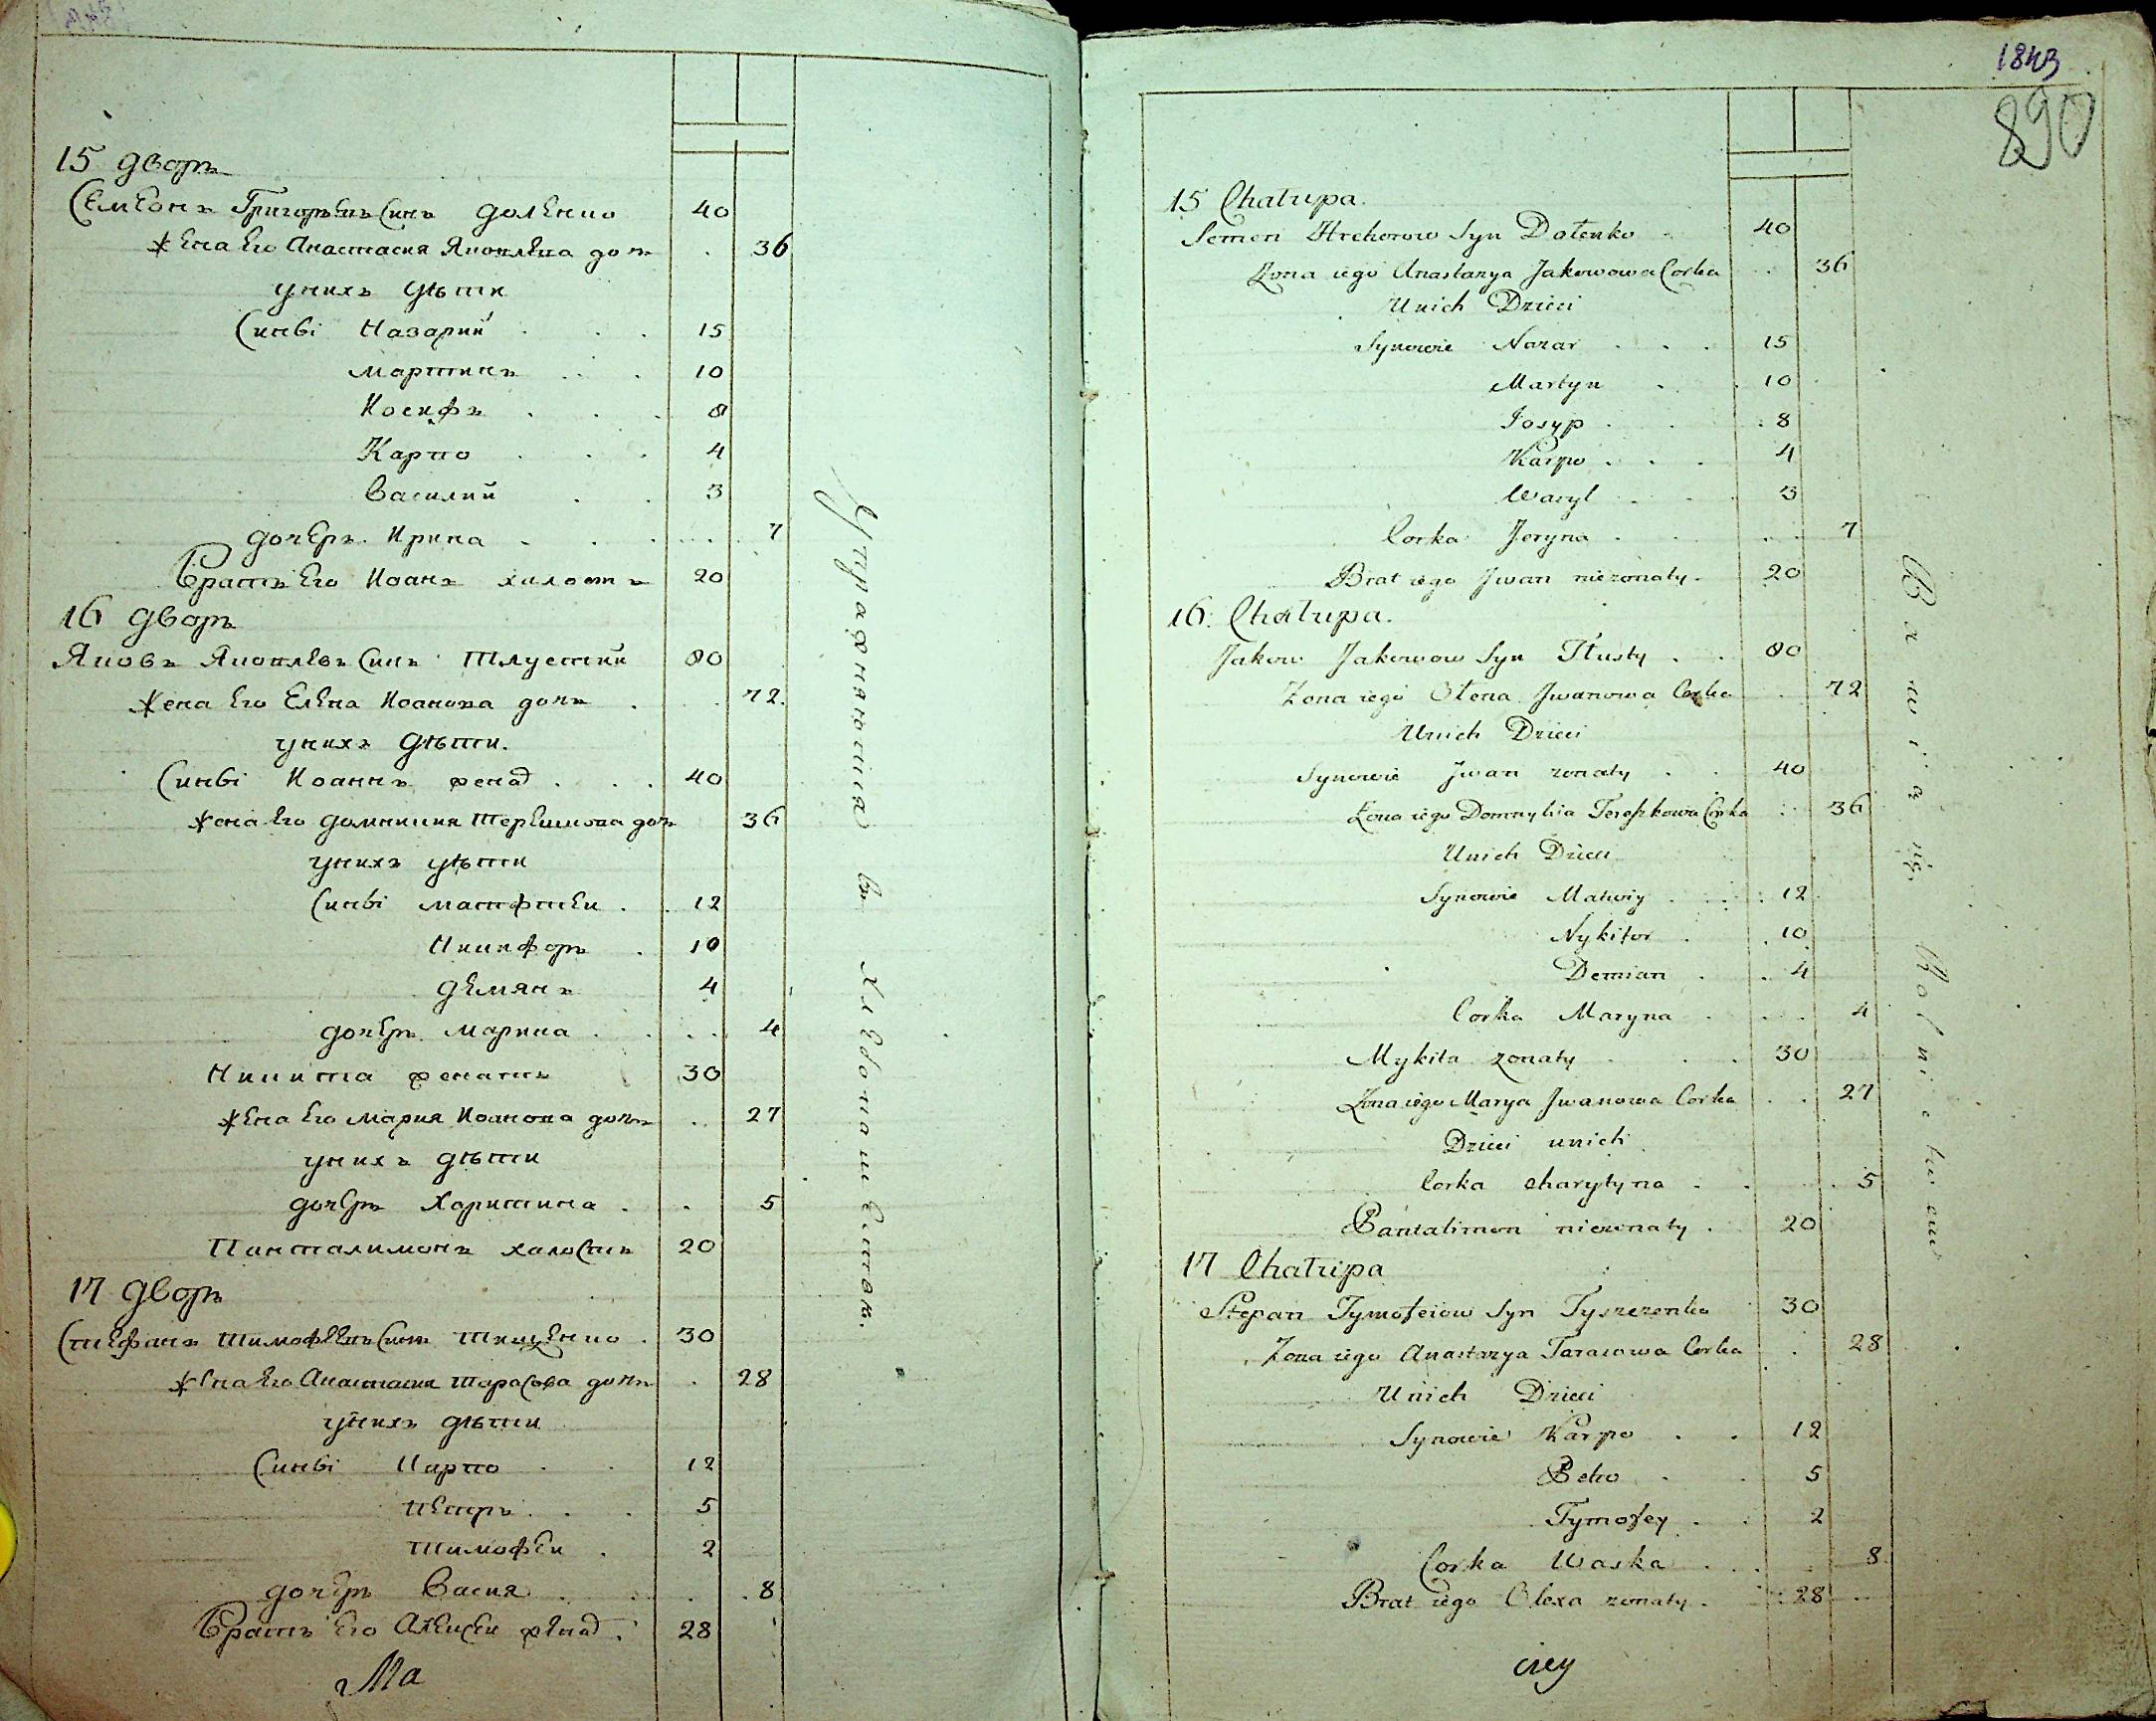 15 дворъ
Семеонъ Григорьевъ Синъ Доленко 40
жена Его Анастасия Яковлева дочь 36
у нихъ дѣти
Синві Назарий 15
Мартинъ 10
Иосифъ 8
Карпо 4
Василий 3
дочерь Ирина 7
Братъ Его Иоанъ холостъ 20
16 дворъ
Яковъ Яковлевъ Синъ Тлустий 80
жена Его Елена Иоанова дочь 72
у нихъ дѣти.
Синві Иоаннъ женад 40
жена Его Домникия Терешкова дочь 36
у нихъ дѣти
Синві Матфтеи 12
Никифоръ 10
Демянъ 4
дочерь Марина 4
Никита женатъ 30
жена Его Мария Иоанова дочь 27
у нихъ дѣти
дочерь Харитина 5
Панталимонъ холостъ 20
17 дворъ
Стефанъ Тимофеевъ Синъ Тищенко 30
жена Его Анастасия Тарасова дочь 28
у нихъ дѣти
Синві Карпо 12
Петръ 5
Тимофеи 2
дочерь Васия 8
Братъ Его Алексеи женад. 28
Ма
Упражняются въ Хлебопашестве.
1843
890
15 Chałupa.
Semen Hrehorow Syn Dołenko 40
Zona iego Anastazya Jakowowa Corka 36
Unich Dzieci
Synowie Nazar 15
Martyn 10
Josyp 8
Karpo 4
Wasyl 3
Corka Jeryna 7
Brat iego Jwan niezonaty 20
16. Chałupa.
Jakow Jakowow Syn Tłusty 80
Zona iego Ołena Jwanowa Corka 72
Unich Dzieci
Synowie Jwan zonaty 40
Zona iego Domnykia Tereszkowa Corka 36
Unich Dzieci
Synowie Matwiy 12
Nykifor 10
Demian 4
Corka Maryna 4
Mykita zonaty 30
Zona iego Marya Jwanowa Corka 27
Dzieci unich
Corka Charytyna 5
Pantalimon niezonaty 20
17 Chałupa
Stepan Tymofeiow Syn Tyszczenko 30
Zona iego Anastazya Tarasowa Corka 28
Unich Dzieci
Synowie Karpo 12
Petro 5
Tymofey 2
Corka Waska 8
Brat iego Olexa zonaty 28
Bawią się Rolnictwem